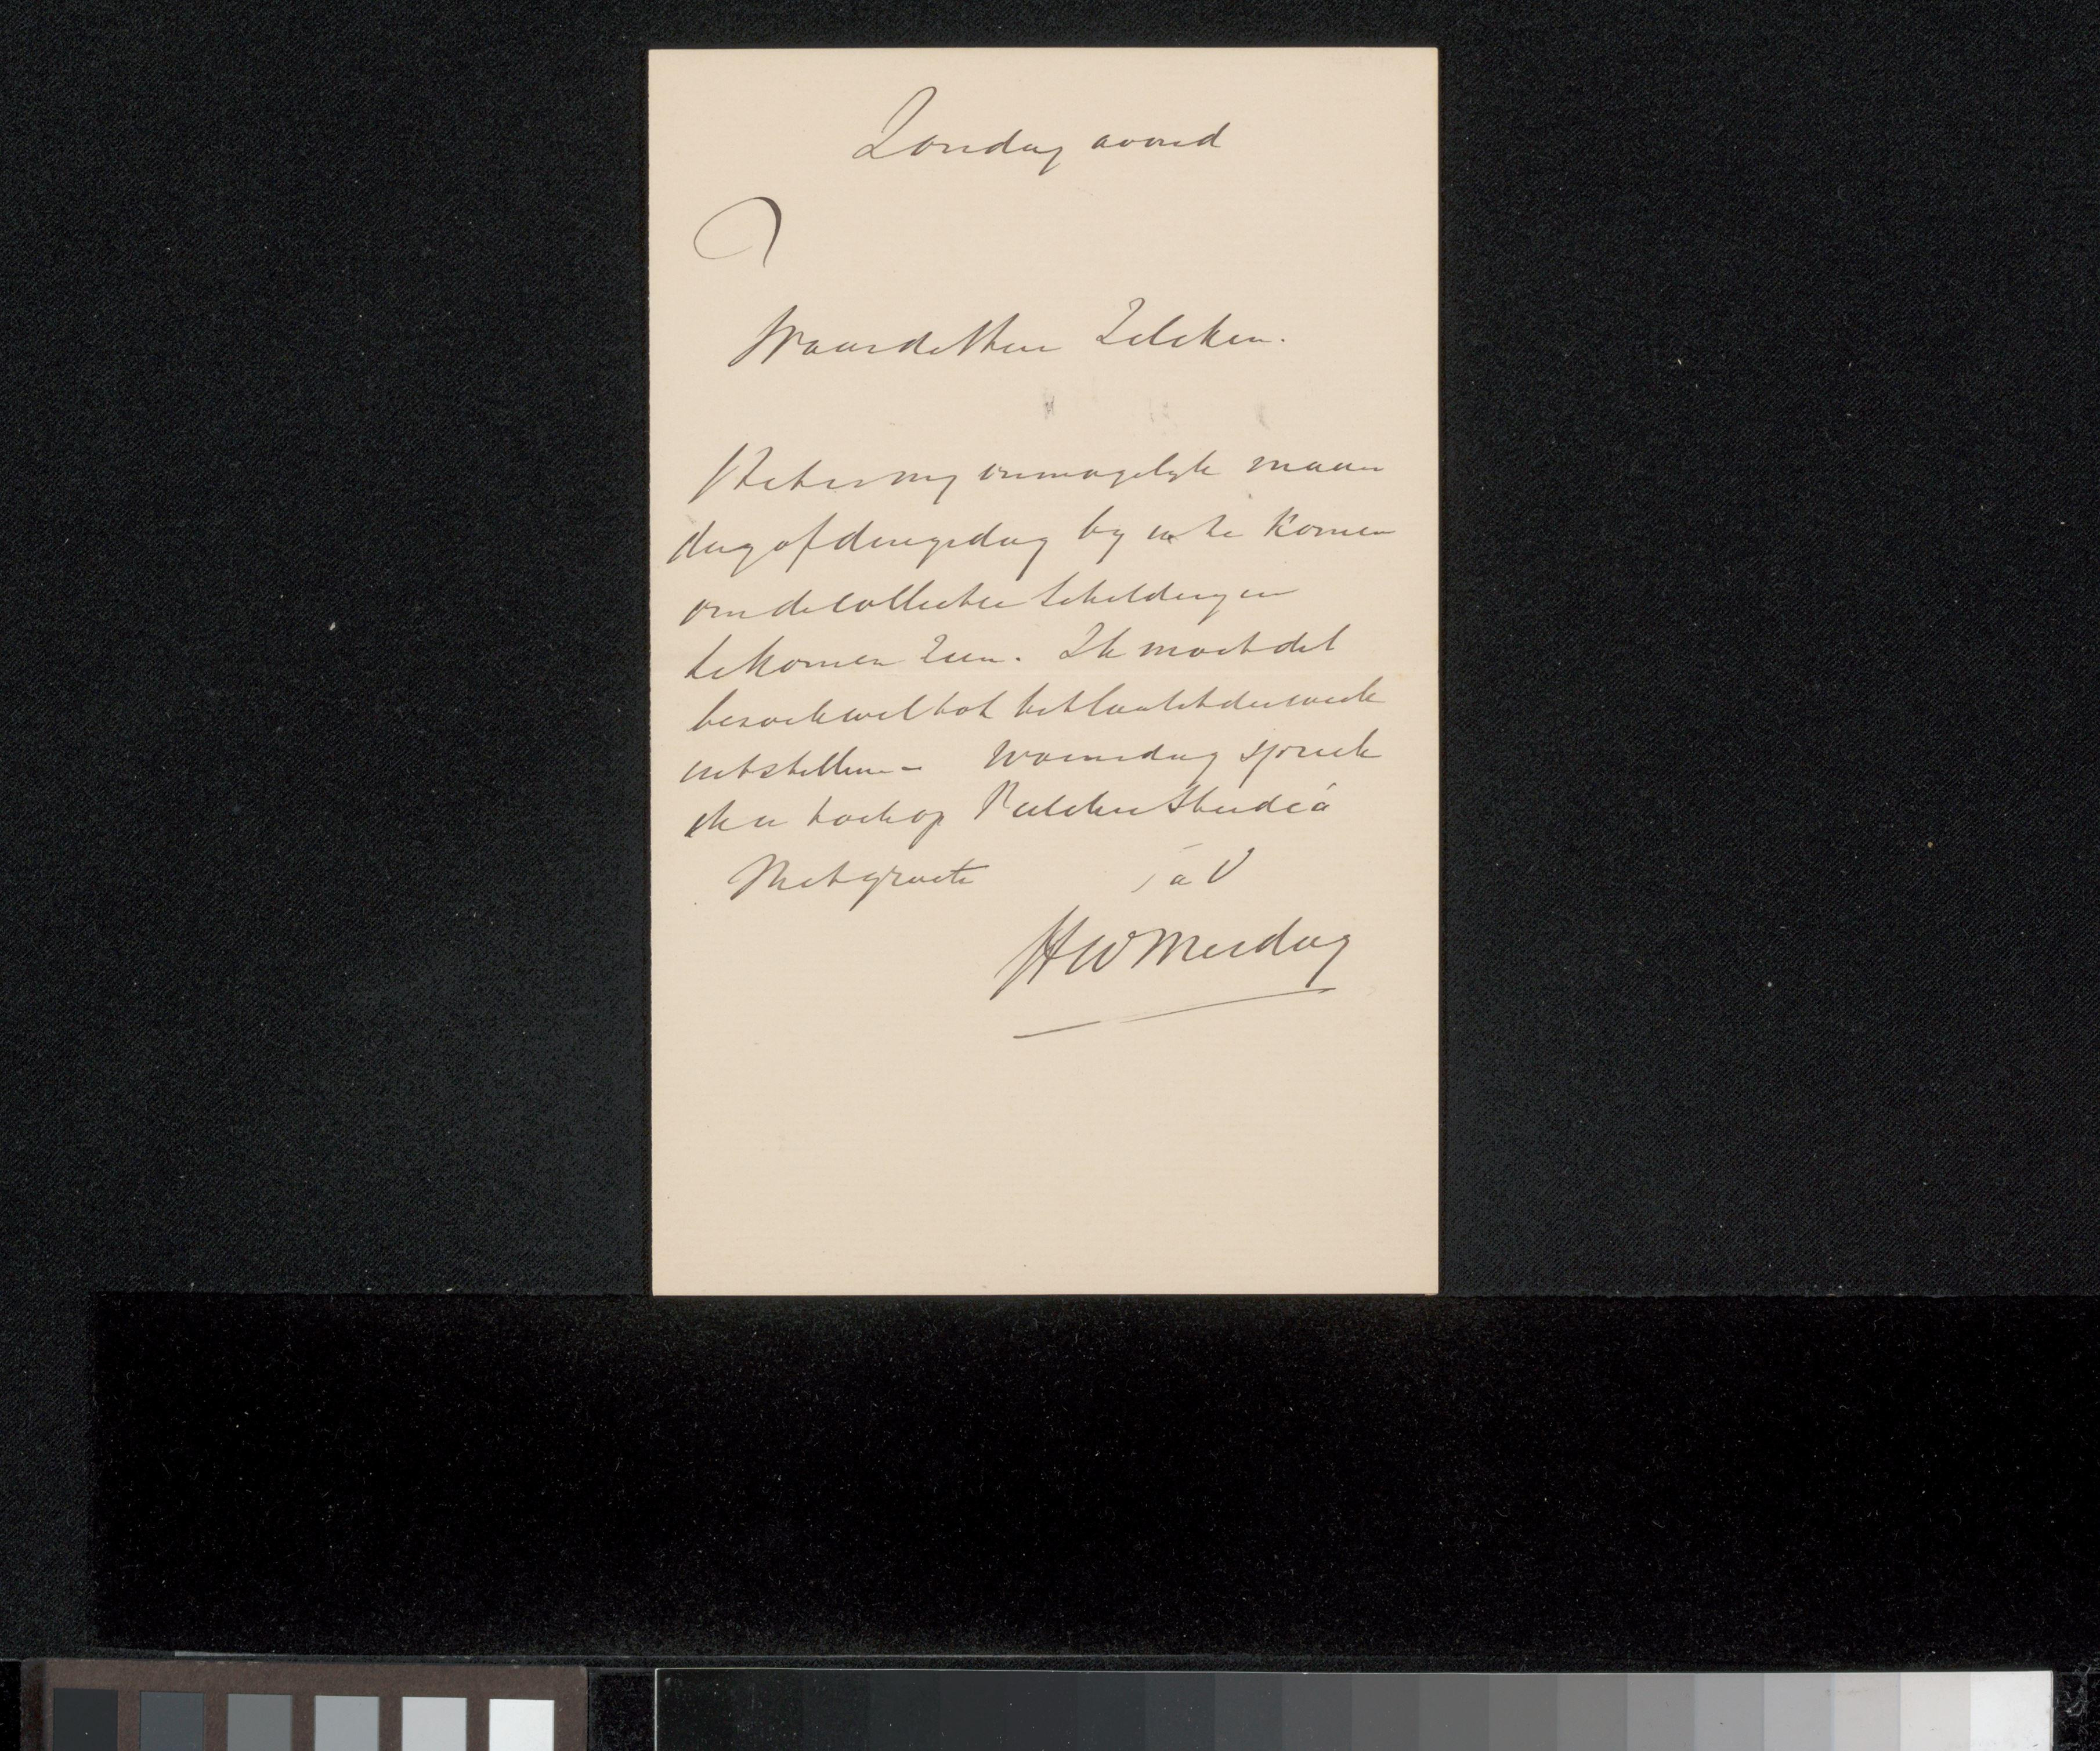 Zondag avond
Waarde Heer Zilcken.
Het is my onmogelyk maan
dag of dingsdag by u te komen
om de collectie schilderyen
te komen zien. Ik moet dat
bezoek wel tot het laatst der week
uitstellen – Woensdag spreek
ik u toch op Pulchri Studio
Met groete
t a V
HW Mesdag